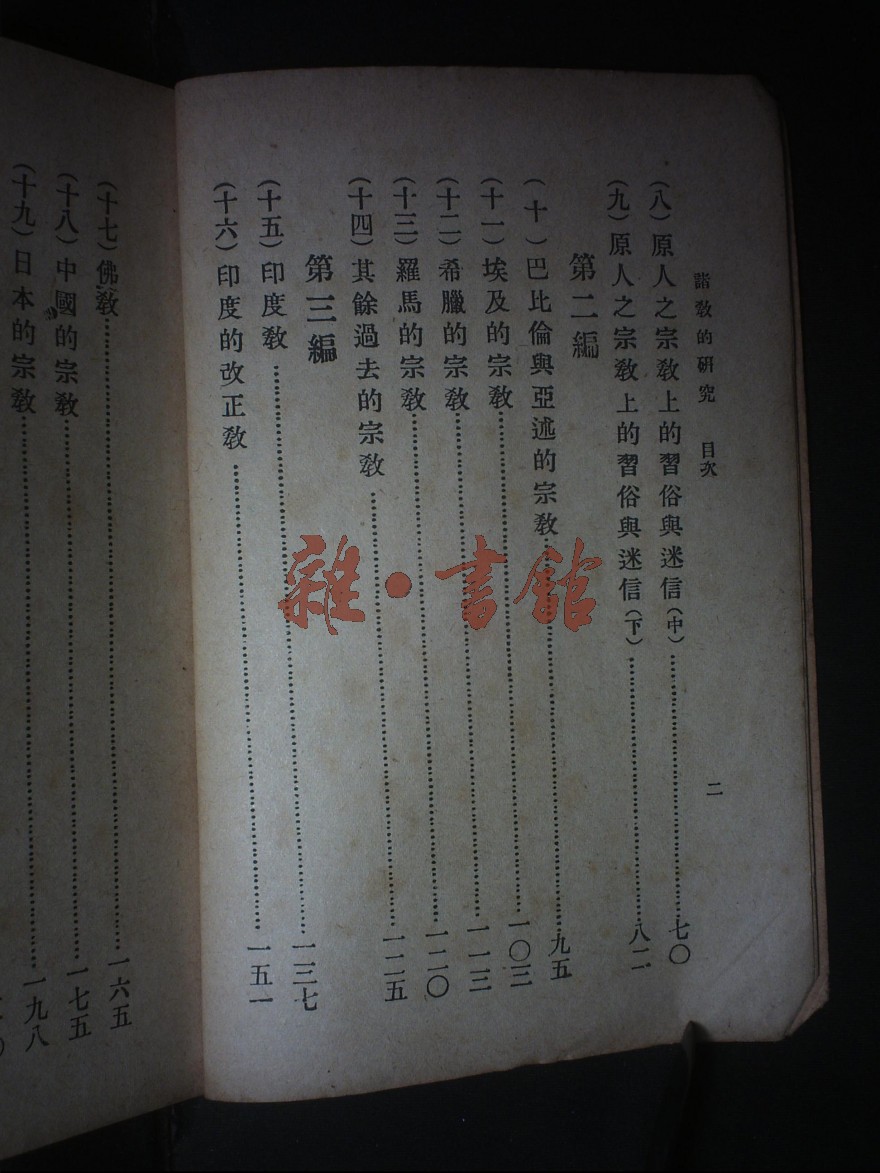 諸敎的硏究 目次 二
（八）原人之宗敎上的習俗與迷信（中）……七〇
（九）原人之宗敎上的習俗與迷信（下）……八二
第二編
（十）巴比倫與亞述的宗敎……九五
（十一）埃及的宗敎……一〇三
（十二）希臘的宗敎……一一三
（十三）羅馬的宗敎……一二〇
（十四）其餘過去的宗敎……一二五
第三編
（十五）印度敎……一三七
（十六）印度的改正敎……一五一
（十七）佛敎……一六五
（十八）中國的宗敎……一七五
（十九）日本的宗敎……一九八
雜·書館